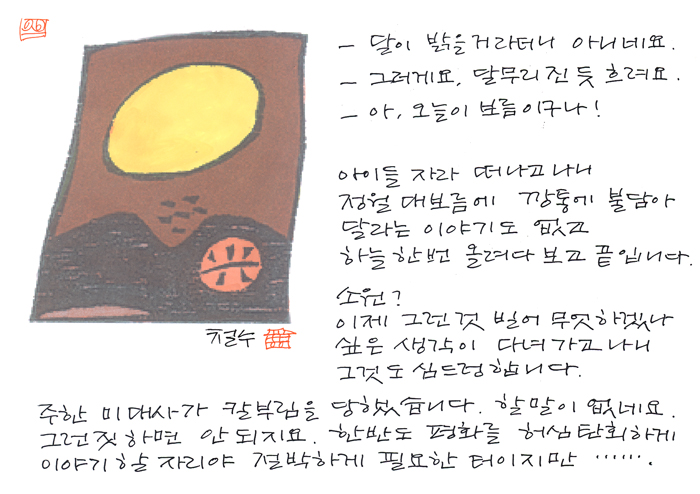 - 달이 밝을거라더니 아니네요.
- 그러게요, 달무리진듯 흐려요.
- 아, 오늘이 보름이구나!
아이들 자라 떠나고나니
정월 대보름에 깡통에 불담아
달라는 이야기도 없고
하늘 한번 올려다 보고 끝입니다.
소원?
이제 그런것 빌어 무엇하겠나
싶은 생각이 다녀가고나니
그것도 심드렁합니다.
철수
주한 미대사가 칼부림을 당했습니다. 할말이 없네요.
그런짓하면 안되지요. 한반도 평화를 허심탄회하게
이야기할 자리야 절박하게 필요한 터이지만 …….